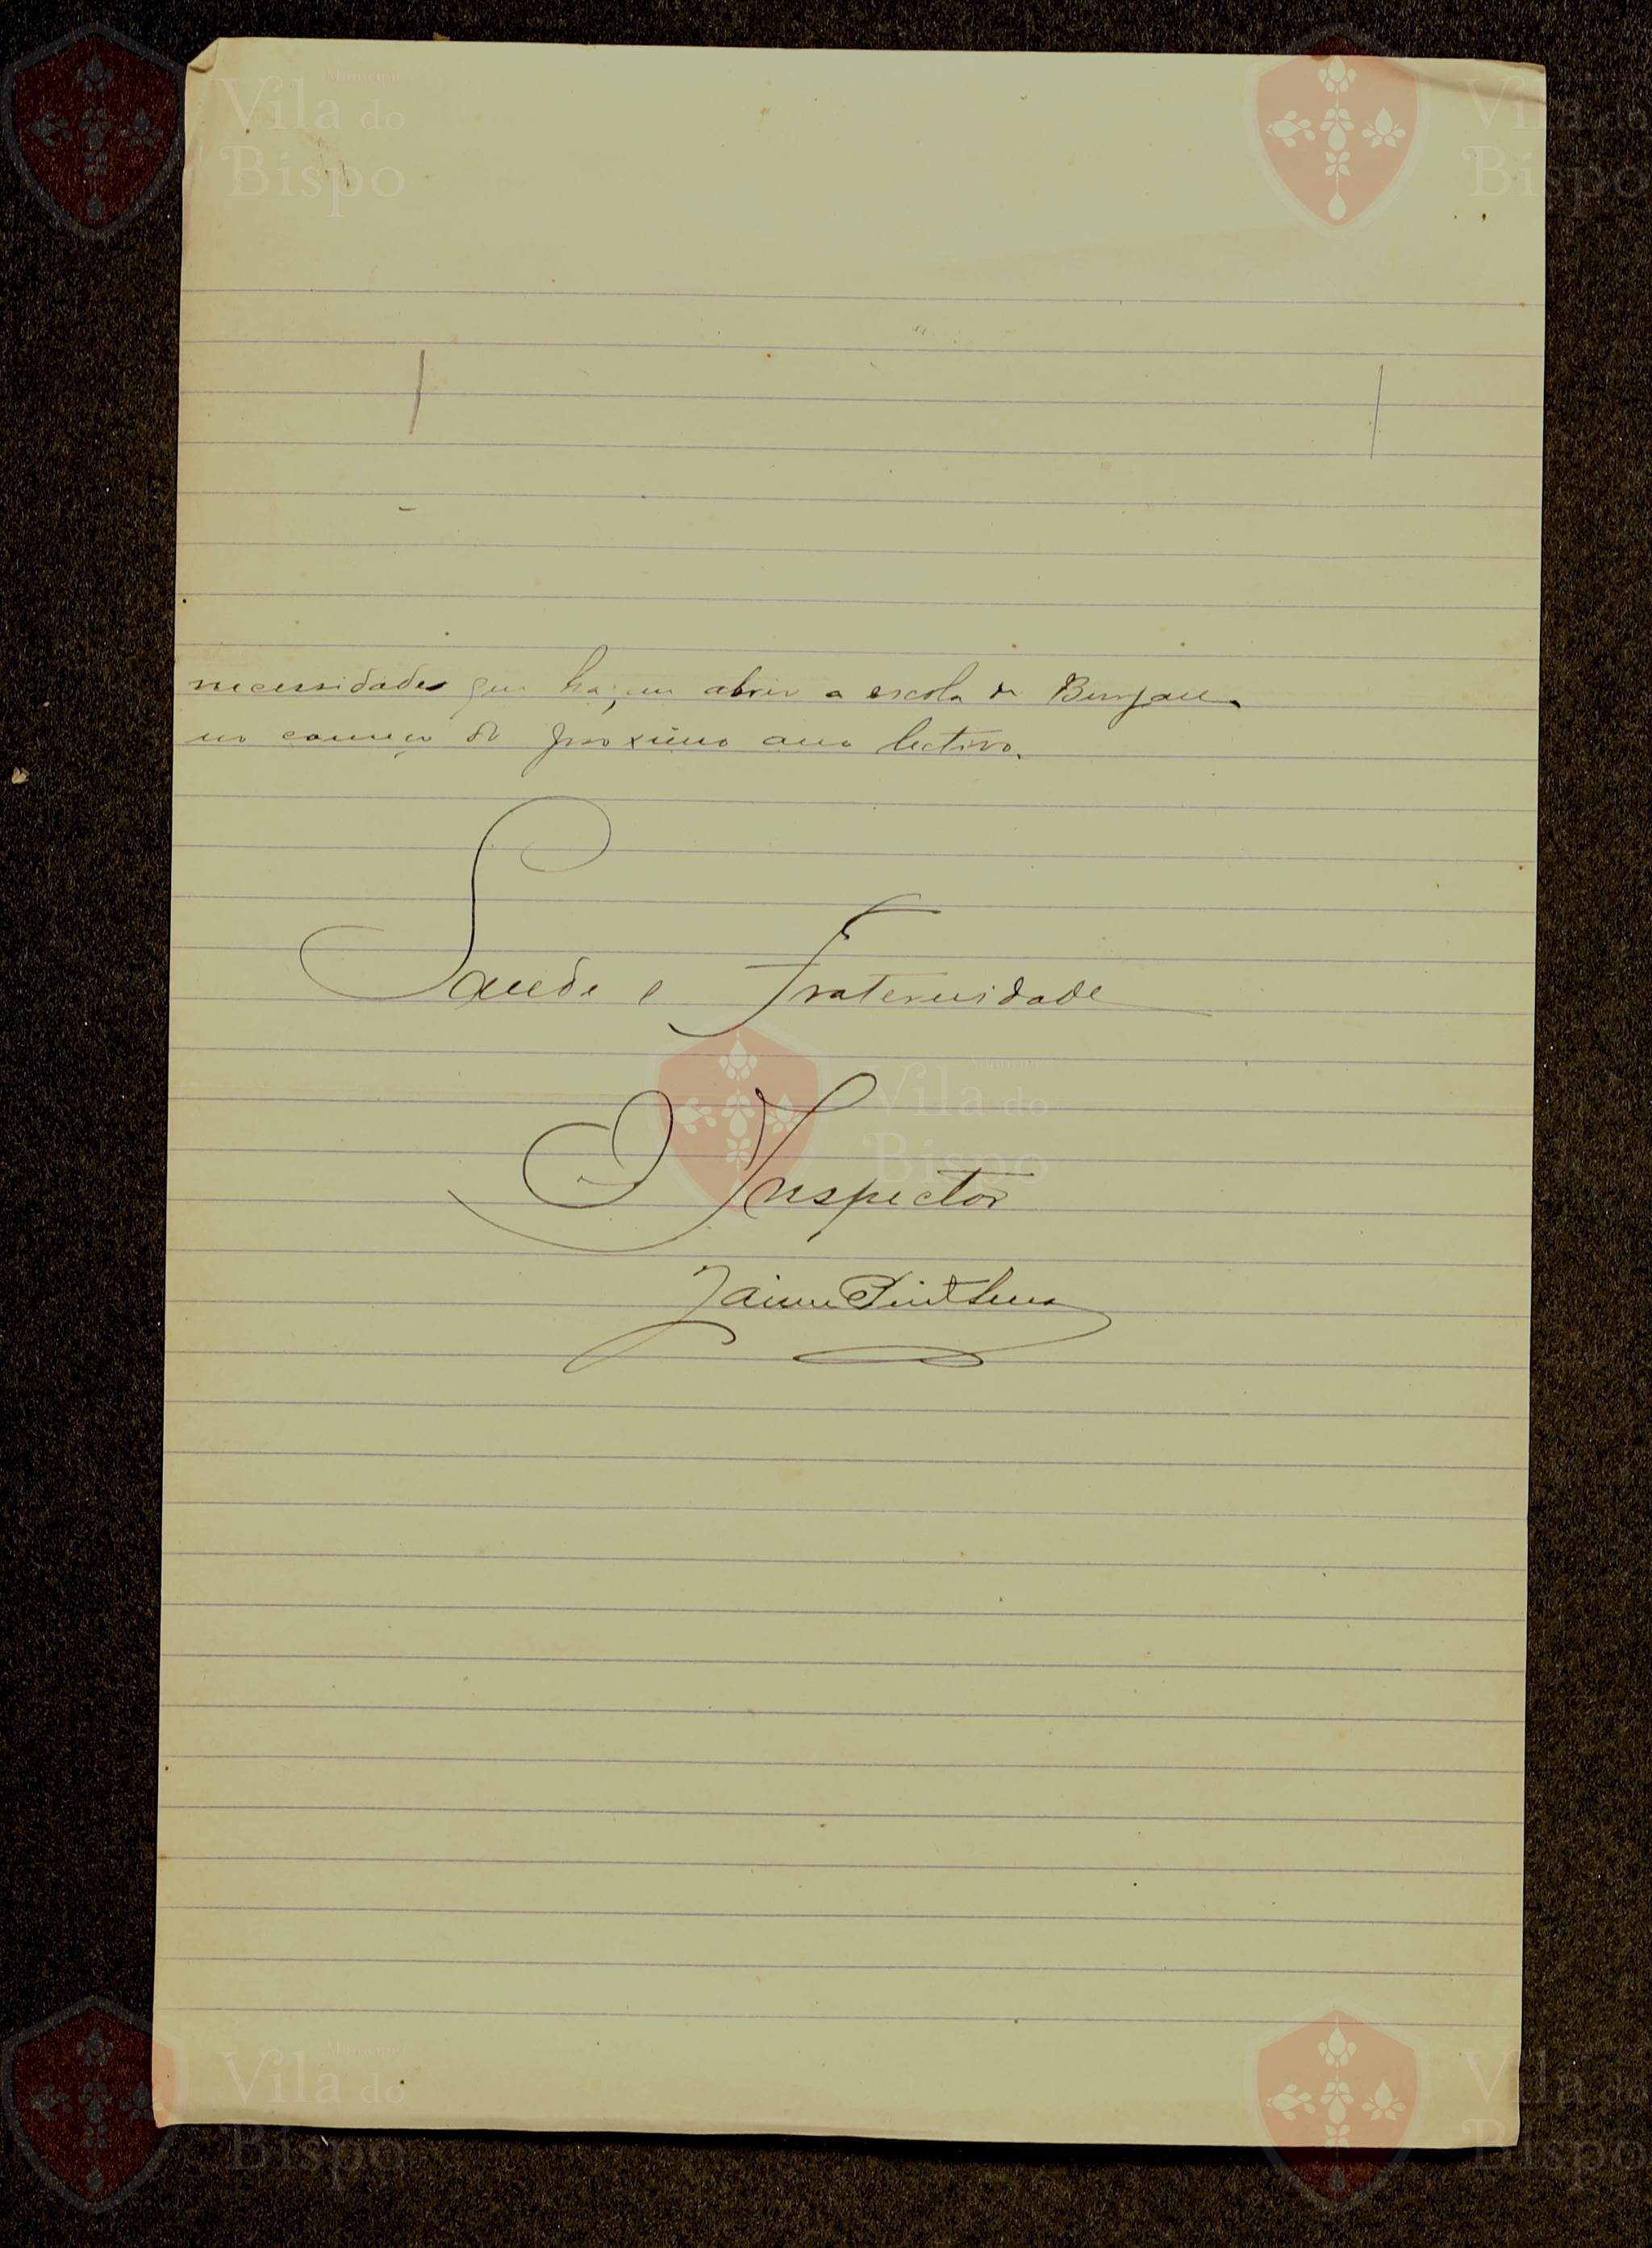 necessidades que ha, em abrir a escola de Burgau
no começo do proximo ano lectivo.
Saude e Fraternidade
O Inspector
Jaime
Município
Vila do
Bispo
Vila do
Bispo
Município
Vila do
Bispo
Município
Vila do
Bispo
Vila do
Bispo